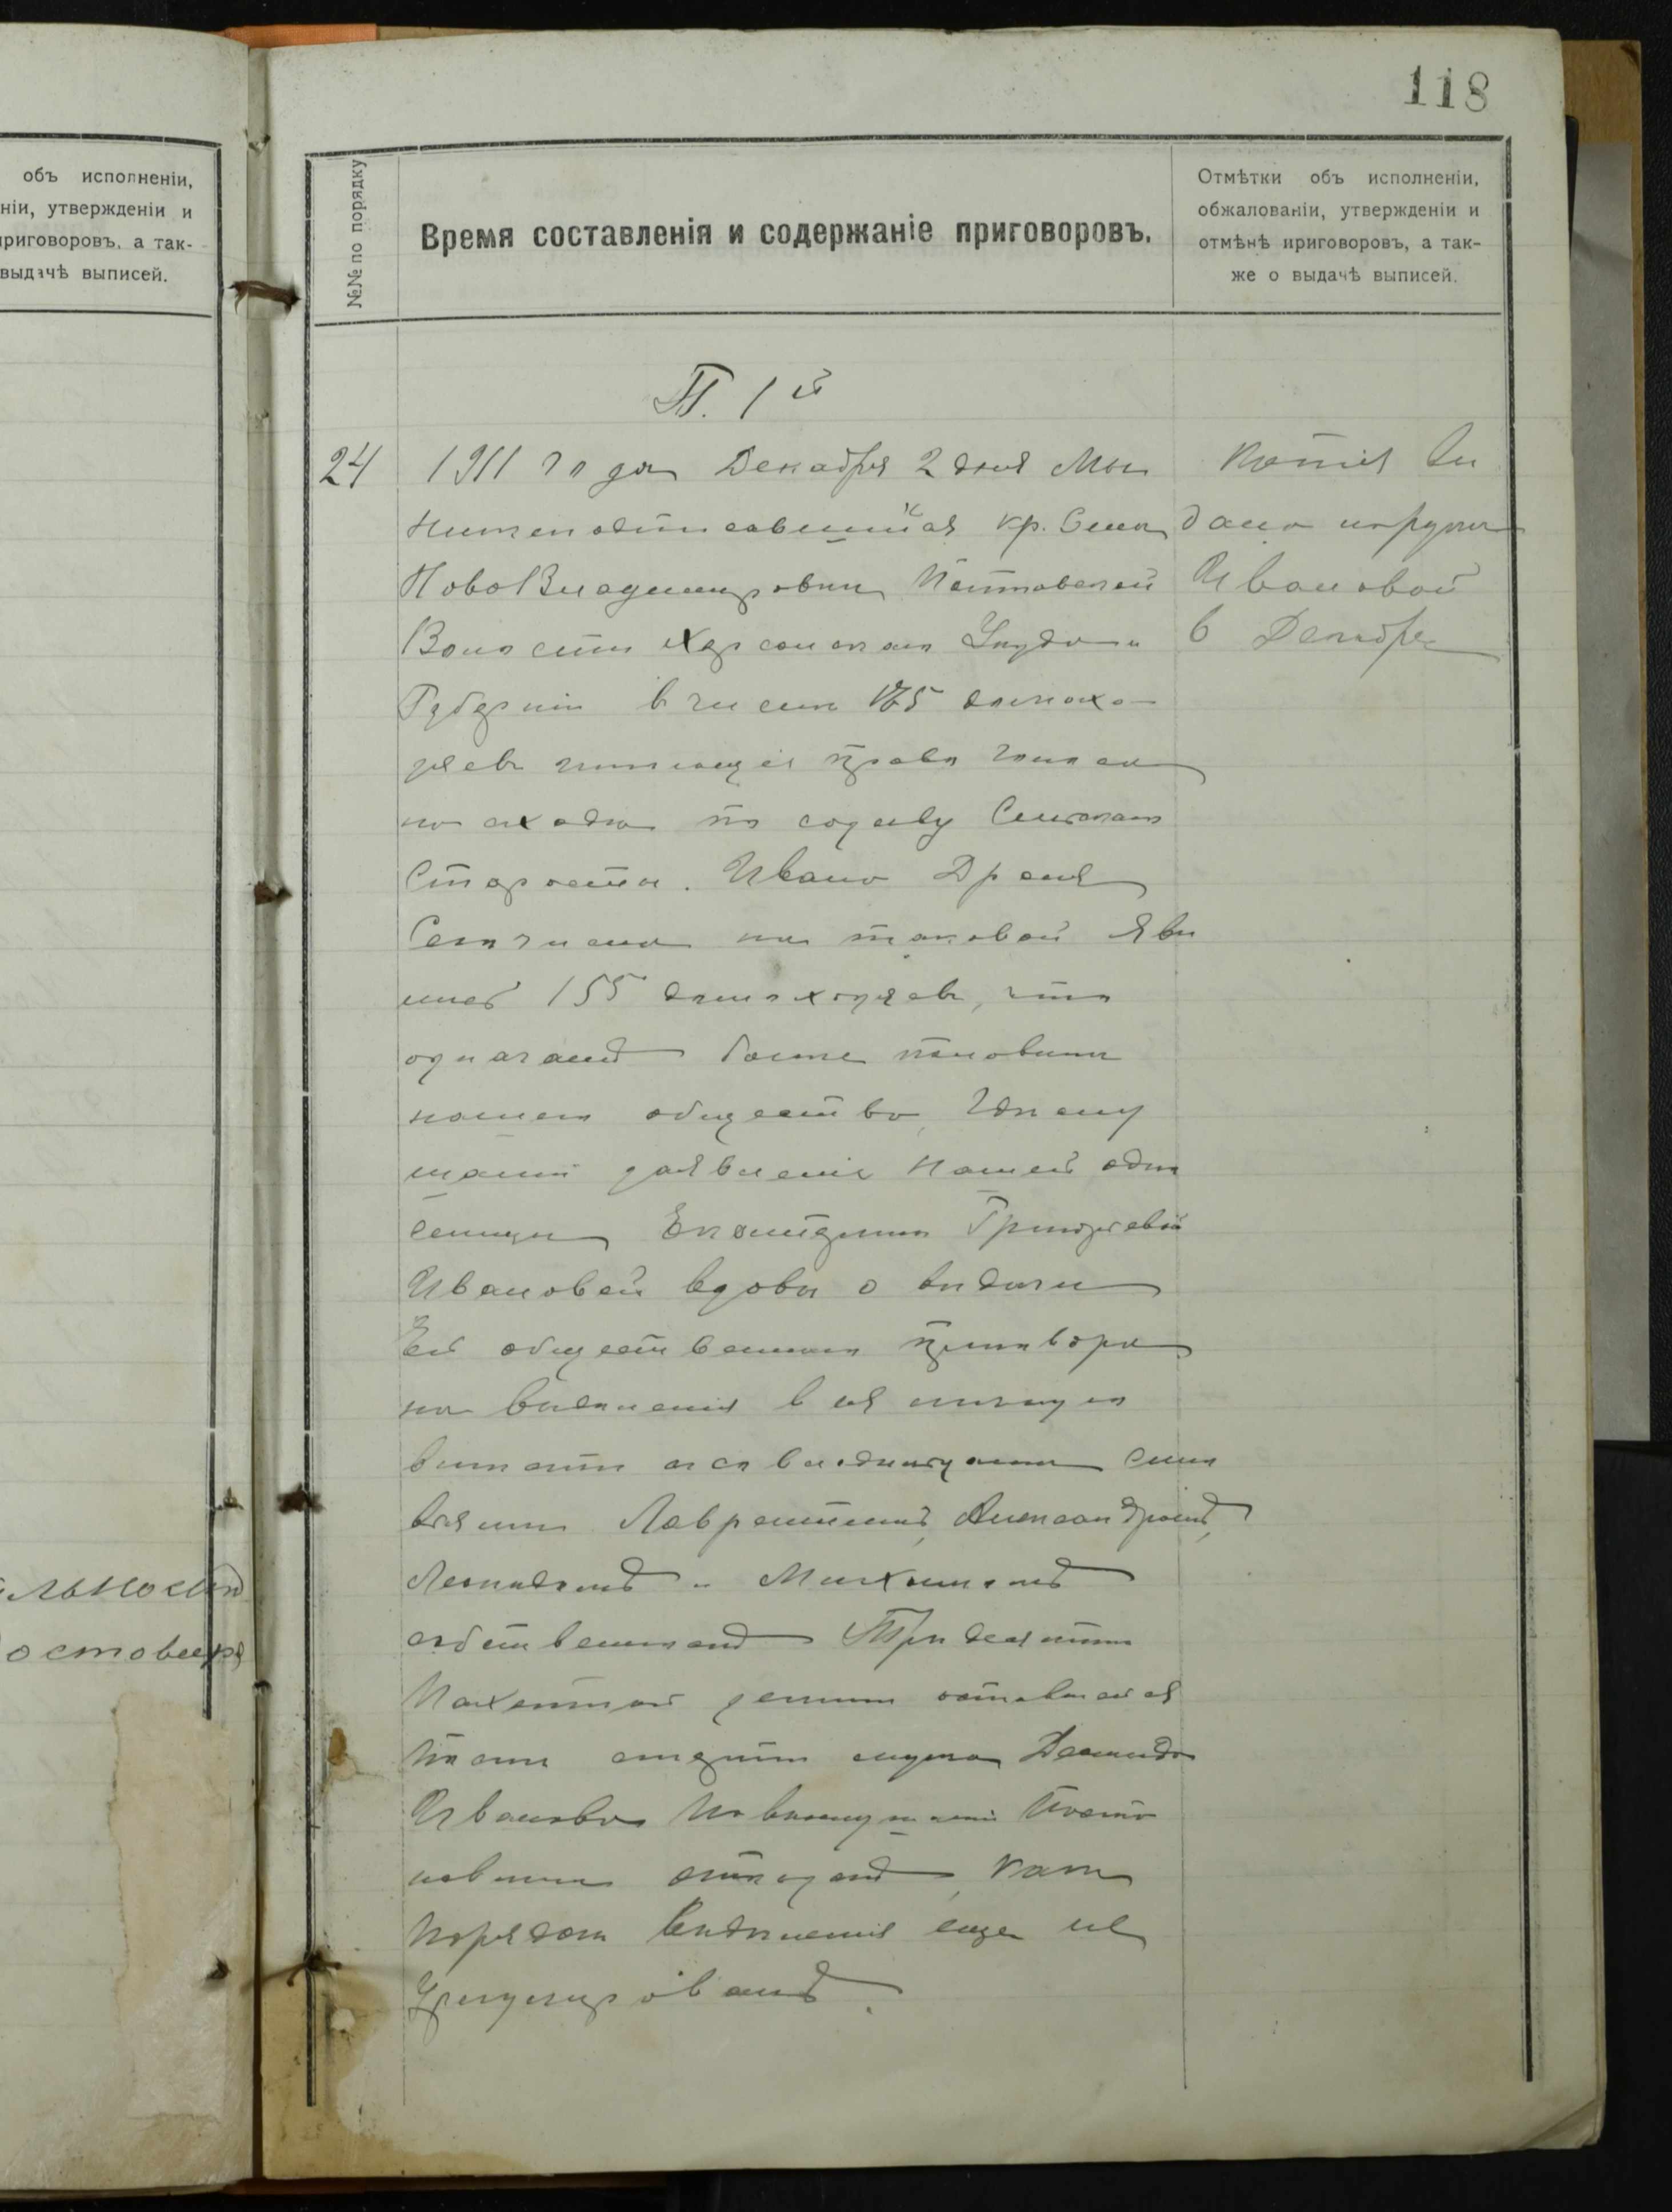 118
объ исполненіи,
ніи, утвержденіи и
приговоровъ, а так-
выдачѣ выписей.
№№ по порядку
Время составленія и содержаніе приговоровъ.
Отмѣтки объ исполненіи,
обжалованіи, утвержденіи и
отмѣнѣ приговоровъ, а так-
же о выдачѣ выписей.
П. 1й
24
1911 года Декабря 2 дня Мы
Нижеподписавшийся кр. Села
НовоВладимировки
Волости Херсонскаго Уезда и
Губернии в числе 185 домохо-
зяев имеющия право голоса
на сходе по созыву Сельскаго
Старосты Ивана
на таковой яви
лись 155 домохозяев, что
более половины
нашего общества, где слу
шали заявление нашей одно
селицы Екатерины Григорьевой
Ивановой вдовы о видачи
Ей общественнаго приговора
на виделения в ея
сино
вями Лаврентием, Александром,
Леонидом и Михаилом
Три десятини
Пахотной земли оставшаяся
После смерти мужа Демида
Иванова Посто
новили отказать, как
порядок виделения еще не
Урегулирован.
Копия ви
дана на руки
Ивановой
6 Декабря
льност
остовер